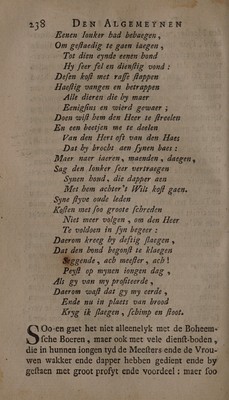 238 DEN ALGEMEYNEN
Eenen Ionker had behaegen,
Om gestaedig te gaen iaegen,
Tot dien eynde eenen hond
Hy seer fel en dienstig vond:
Desen kost met rasse stappen
Haestig vangen en betrappen
Alle dieren die by maer
Eenigsins en wierd gewaer;
Doen wist hem den Heer te streelen
En een beetjen me te deelen
Van den Hert oft van den Haes
Dat hy brocht aen synen baes:
Maer naer iaeren, maenden, daegen,
Sag den Ionker seer vertraegen
Synen hond, die dapper aen
Met hem achter't Wilt kost gaen.
Syne styve oude leden
Kosten met soo groote schreden
Niet meer volgen, om den Heer
Te voldoen in syn begeer:
Daerom kreeg hy deftig slaegen,
Dat den hond begonst te klaegen
Seggende, ach meester, ach!
Peyst op mynen iongen dag,
Als gy van my profiteerde,
Daerom wast dat gy my eerde,
Ende nu in plaets van brood
Kryg ik slaegen, schimp en stoot.
SOo-en gaet het niet alleenelyk met de Boheem-
sche Boeren, maer ook met vele dienst-boden,
die in hunnen iongen tyd de Meesters ende de Vrou-
wen wakker ende dapper hebben gedient ende by
gestaen met groot profyt ende voordeel: maer soo